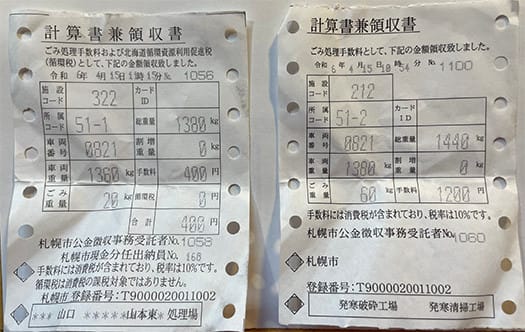 計算書兼領収書
ごみ処理手数料および北海道循環資源利用促進税
(循環税)として、下記の金額領収致しました。
令和 6年 4月15日11時15分 № 1056
施設コード 322 カードID
所属コード 51-1 総重量 1380 kg
車両番号 0821 割増重量 0 kg
車両重量 1360 kg 手数料 400 円
ごみ重量 20 kg 循環税 0 円
合計 400 円
札幌市公金徴収事務受託者No. 1058
札幌市現金分任出納員No. 168
手数料には消費税が含まれており、税率は10%です。
循環税は消費税の課税対象ではありません。
札幌市 登録番号:T9000020011002
*** 山口 *****山本東* 処理場
計算書兼領収書
ごみ処理手数料として、下記の金額領収致しました。
令和 6年 4月15日10時54分 № 1100
施設コード 212
所属コード 51-2 カードID
車両番号 0821 総重量 1440 kg
車両重量 1380 kg 割増重量 0 kg
ごみ重量 60 kg 手数料 1200 円
手数料には消費税が含まれており、税率は10%です。
札幌市公金徴収事務受託者No. 1060
札幌市
登録番号:T9000020011002
発寒破砕工場 発寒清掃工場